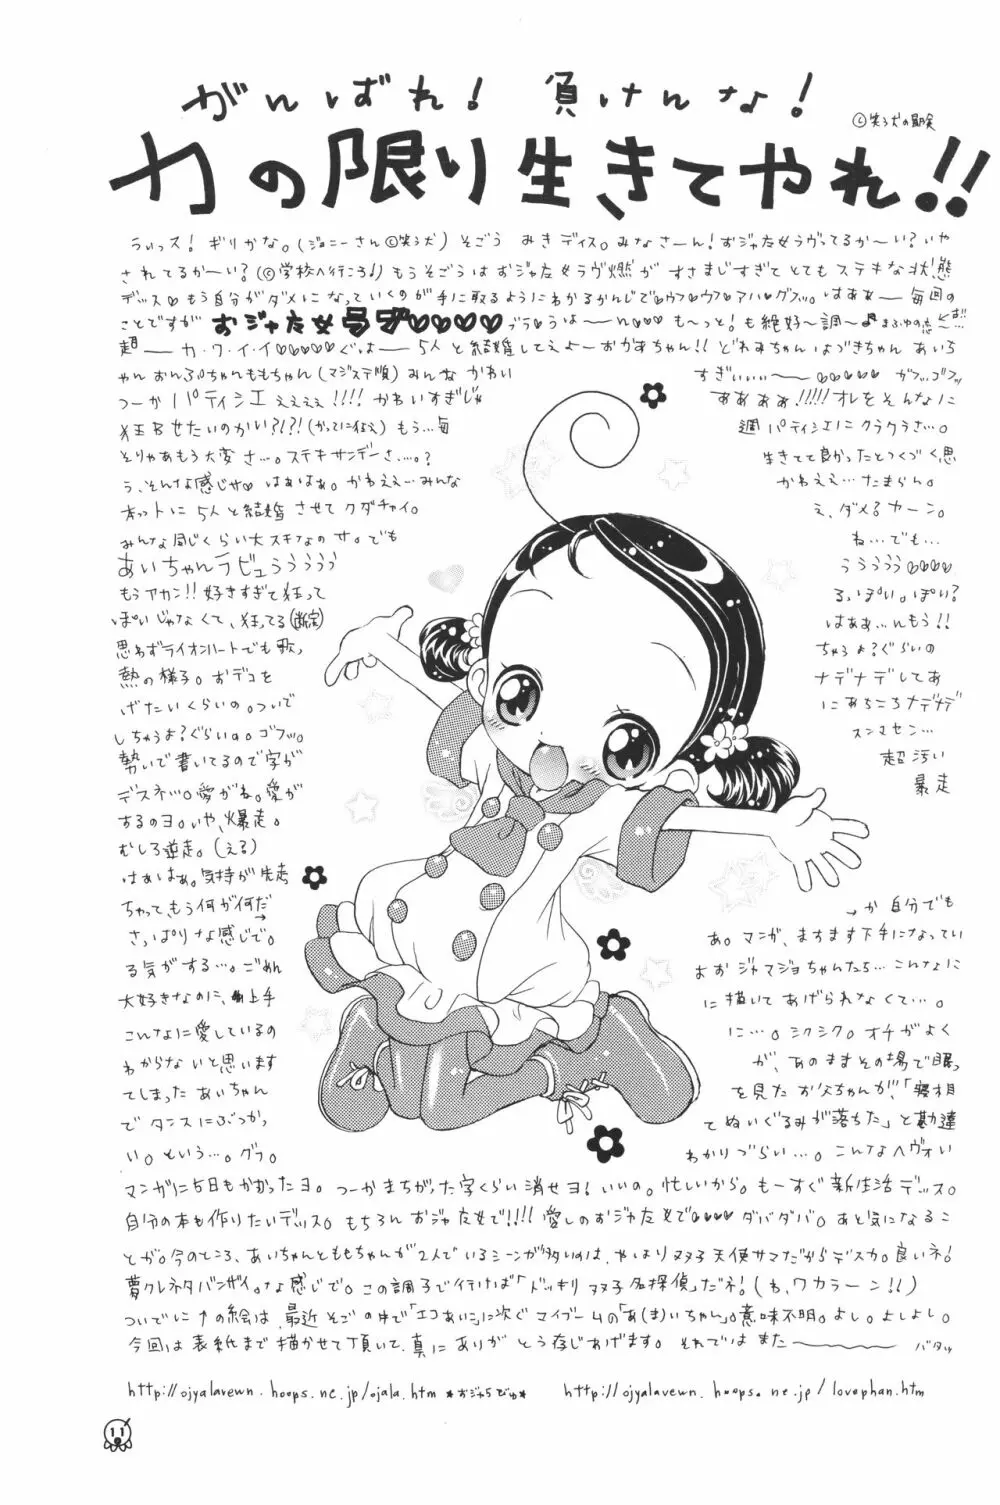 がんばれ! 負けんな!
©笑う犬の冒険
力の限り生きてやれ!!
らぃっス! ギリかな。(ジョニーさん©笑う犬) そごう みきディス。みなさーん!おジャ女ラヴってるか〜い?いや
されてるか〜い?(©学校へ行こう) もうそごうはおジャ女ラヴ燃がすさまじすぎてとてもステキな状態
デッス♡もう自分がダメになっていくのが手に取るようにわかるかんじで♡ウフ♡ウフ♡アハ♡グフッ。はああー毎回の
ことですが おジャ女ラブ♡♡♡♡ ブラ♡うは——n♡♡♡ も〜っと!も絶好〜調〜♪
超——カ・ワ・イ・イ♡♡♡♡♡ぐはー 5人と結婚してえよーおかあちゃん!! どれみちゃん はづきちゃん あいち
ゃん おんぷちゃんももちゃん(マジステ順)みんな かわい すぎいぃぃ——♡♡♡♡♡ ガフッゴフッ
つーか パティシエぇぇぇぇ!!!! かわいすぎじゃ ああああ!!!!!オレをそんなに
狂わせたいのかい?!?!(かってに狂え) もう…毎 週パティシエにクラクラさ…。
そりゃあもう大変さ…。ステキサンデーさ…。? 生きてて良かったとつくづく思
う、そんな感じサ♡はぁはぁ。かわええ…みんな かわええ…たまらん。
ホントに5人と結婚させてクダチャイ。 え、ダメ?カーン。
みんな同じくらい大スキなのサ。でも ね…でも…
あいちゃんラビュううううう ううううう♡♡♡♡
もうアカン!!好きすぎて狂って る、ぽい。ぽい?
ぽいじゃなくて、狂ってる(断定) はああ…んもう!!
思わずライオンハートでも歌 ちゃうよ?ぐらいの
熱の様子。おデコを ナデナデしてあ
げたいくらいの。ついで にあちこちナデナデ
しちゃうよ?ぐらいの。ゴフッ。 スンマセン…
勢いで書いてるので字が 超汚い
デスネッ。愛がね。愛が 暴走
するのヨ。いや、爆走。
むしろ逆走。(える)
はぁはぁ。気持が先走
ちゃって、もう何が何だ→ →か自分でも
さっぱりな感じで。 あ。マンガ、ますます下手になってい
る気がする…。ごめん よおジャマジョちゃんたち…こんなに
大好きなのに、上手 に描いてあげられなくて…。
こんなに愛しているの に…。シクシク。オチがよく
わからないと思います が、あのままその場で眠っ
てしまったあいちゃん を見たお父ちゃんが、「寝相
でタンスにぶつかっ てぬいぐるみが落ちた」と勘違
い。という…。グラ。 わかりづらい…。こんなヘヴォい
マンガに5日もかかったヨ。つーかまちがった字くらい消せヨ!いいの。忙しいから。もーすぐ新生活デッス。
自分の本も作りたいデッス。もちろんおジャ女で!!!!愛しのおジャ女で♡♡♡♡ダバダバ。あと気になるこ
とが。今のところ、あいちゃんとももちゃんが2人でいるシーンが多いのは、やはり双子天使サマだからデスカ。良いネ!
夢クレネタバンザイ。な感じで。この調子で行けば「ドッキリ双子名探偵」だネ!(わ、ワカラーン!!)
ついでに↑の絵は、最近そごの中で「エコあい」に次ぐマイブームの「あ(ま)いちゃん」。意味不明。よし。よしよし。
今回は表紙まで描かせて頂いて、真にありがとう存じあげます。それではまた———— バタッ
http://ojyalavewn.hoops.ne.jp/ojala.htm *おジャらびゅ* http://ojyalavewn.hoops.ne.jp/lovephan.htm
11